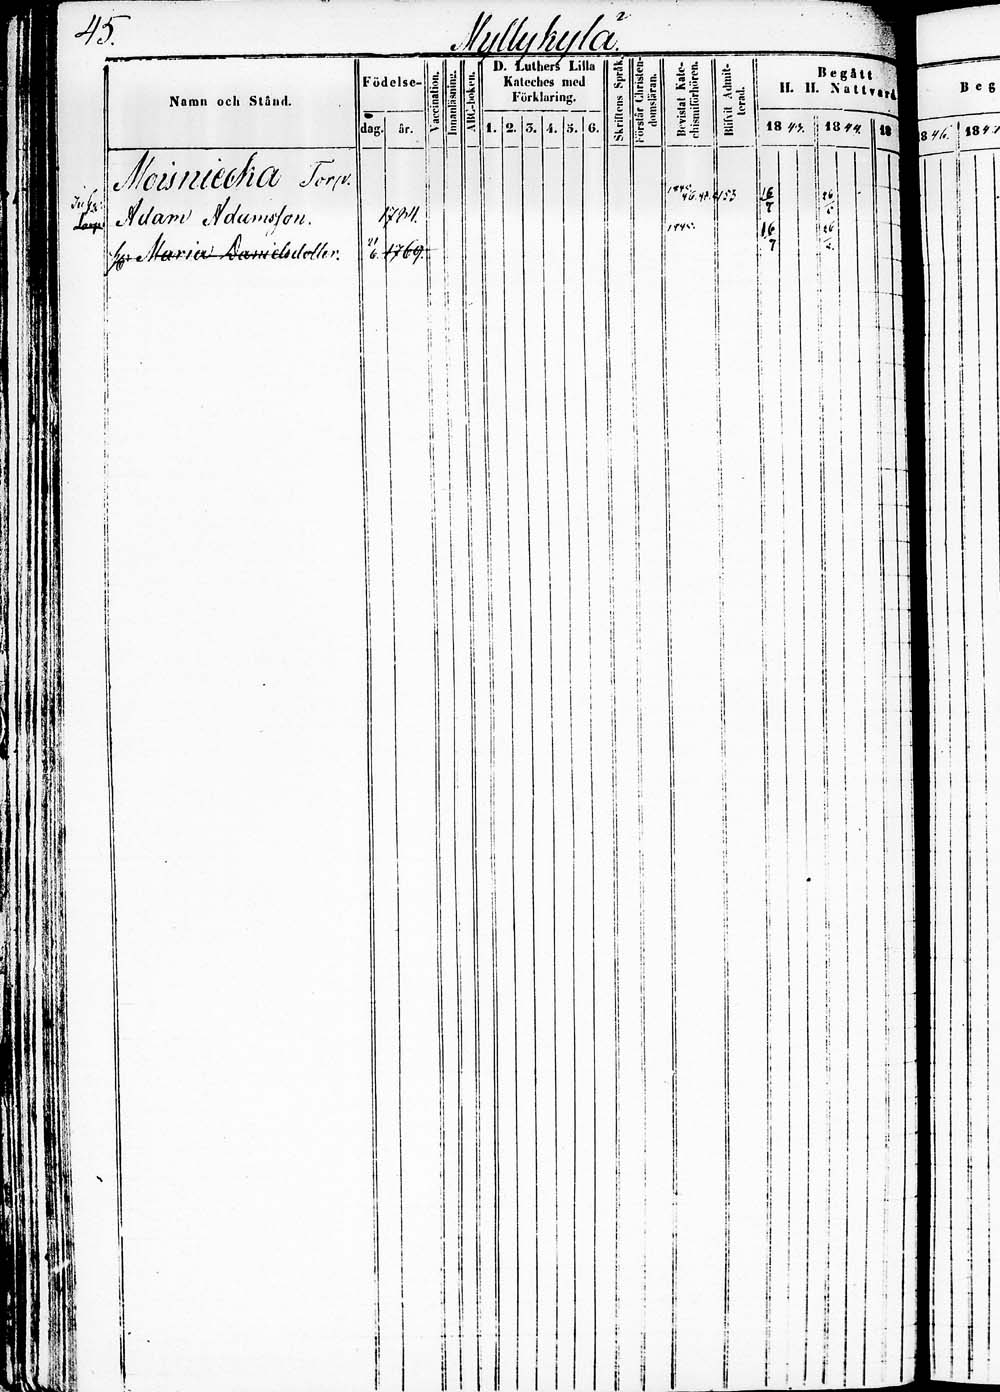 45.
Myllykylä. 2
Namn och Stånd.
Födelse-
dag. år.
Vaccination.
Innanläsning.
ABC-boken.
D. Luthers Lilla
Kateches med
Förklaring.
1. 2. 3. 4. 5. 6.
Skriftens Språk.
Förstår Christen-
domsläran.
Bevistat Kate-
chismiförhören.
Blifvit Admit-
terad.
Begått
H. H. Nattvard
1843. 1844. 18
Beg
1846. 184
Moisniecka Torp.
Adam Adamsson. 1784. 16/7 26
Maria Danielsdotter. 21/6 1769. 1845. 16/7 26